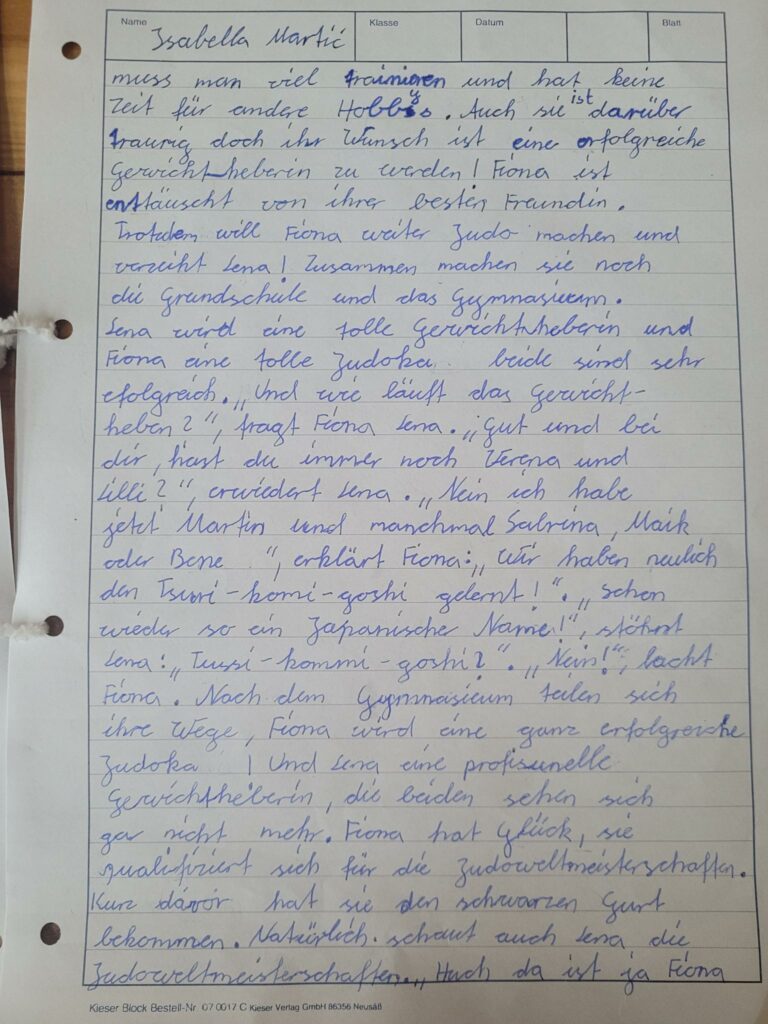 Name Klasse Datum Blatt
Isabella Martić
muss man viel trainieren und hat keine
Zeit für andere Hobbys. Auch sie ist darüber
traurig doch ihr Wunsch ist eine erfolgreiche
Gewichtheberin zu werden! Fiona ist
enttäuscht von ihrer besten Freundin.
Trotzdem will Fiona weiter Judo machen und
verzeiht Lena! Zusammen machen sie noch
die Grundschule und das Gymnasieum.
Lena wird eine tolle Gewichtsheberin und
Fiona eine tolle Judoka. beide sind sehr
efolgreich. „Und wie läuft das Gewicht-
heben?", fragt Fiona Lena. „Gut und bei
dir, hast du immer noch Verena und
Lilli?", erwiedert Lena. „Nein ich habe
jetzt Martin und manchmal Sabrina, Maik
oder Bene ", erklärt Fiona: „Wir haben neulich
den Tsuri-komi-goshi gelernt!". „Schon
wieder so ein Japanischer Name!", stöhnt
Lena: „Tussi-kommi-goshi?". „Nein!", lacht
Fiona. Nach dem Gymnasieum teilen sich
ihre Wege, Fiona wird eine ganz erfolgreiche
Judoka ! Und Lena eine profisunelle
Gewichtheberin, die beiden sehen sich
gar nicht mehr. Fiona hat Glück, sie
qualifiziert sich für die Judoweltmeisterschaften.
Kurz davor hat sie den schwarzen Gurt
bekommen. Natürlich schaut auch Lena die
Judoweltmeisterschaften. „Huch da ist ja Fiona
Kieser Block Bestell-Nr. 07 0017 C Kieser Verlag GmbH 86356 Neusäß